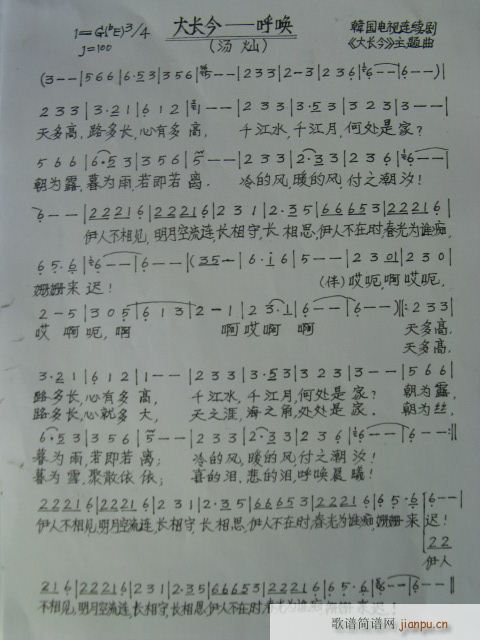 大长今——呼唤
1=G(♭E)3/4
J=100
(汤灿)
韩国电视连续剧
《大长今》主题曲
(3--|566|6·53|356|5--|233|2-3|236|6--|6--|
233|3·21|612|1--|233|3·53|323|3--|
天多高,路多长,心有多高, 千江水,千江月,何处是家?
566|6·53|356|5--|233|2·33|236|6--|
朝为露,暮为雨,若即若离. 冷的风,暖的风付之潮汐!
6--|222216|222216|231|2·35|666653|222216|
伊人不相见,明月空流连,长相守,长相思,伊人不在时,春光为谁痴,
65·6|6--|6--|(35-|6·i6|5--|2301|230|
姗姗来迟! (伴)哎呃啊哎呃,
2-5|305|613|2-1|23·1|6--|6--)||:233|
哎 啊呃,啊 啊哎啊 啊 天多高,
天多高,
3·21|612|1--|233|3·53|323|3--|566|
路多长,心有多高, 千江水,千江月,何处是家? 朝为露,
路多长,心就多大, 天之涯,海之角,处处是家. 朝为丝,
6·53|356|5--|233|2·33|236|6--|6--:||
暮为雨,若即若离; 冷的风,暖的风付之潮汐!
暮为雪,聚散依依; 喜的泪,悲的泪,呼唤晨曦!
222216|222216|231|2·35|666653|222216|65·6|6--|
伊人不相见,明月空流连,长相守,长相思,伊人不在时,春光为谁痴,姗姗来迟!
22
伊人
216|222216|231|2·35|666653|222216|65·6|6--|6--||
不相见,明月空流连,长相守,长相思,伊人不在时,春光为谁痴,姗姗来迟!
歌谱简谱网
jianpu.cn